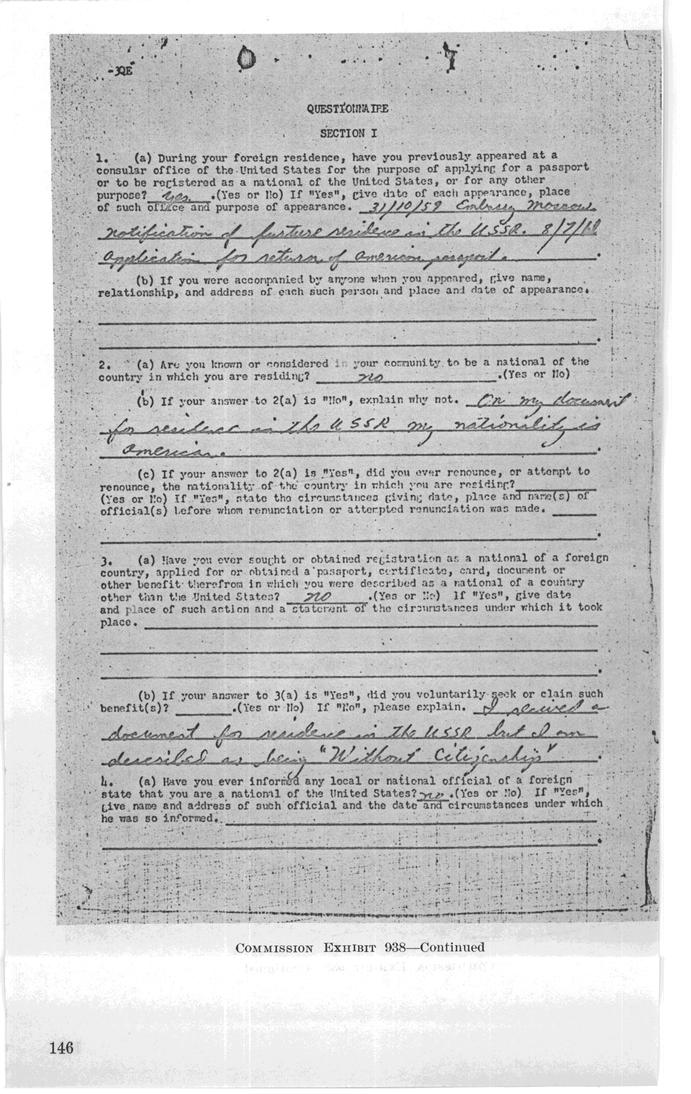 -3QE
QUESTIONNAIRE
SECTION I
1. (a) During your foreign residence, have you previously appeared at a
consular office of the United States for the purpose of applying for a passport
or to be registered as a national of the United States, or for any other
purpose? yes .(Yes or No) If "Yes", give date of each appearance, place
of such office and purpose of appearance. 31/10/59 Embassy Moscow,
notification of furture residence in the USSR. 8/7/61
application for return of american passport.
(b) If you were accompanied by anyone when you appeared, give name,
relationship, and address of each such person and place and date of appearance.
2. (a) Are you known or considered in your community to be a national of the
country in which you are residing? no .(Yes or No)
(b) If your answer to 2(a) is "No", explain why not. On my document
for residence in the USSR my nationality is
american.
(c) If your answer to 2(a) is "Yes", did you ever renounce, or attempt to
renounce, the nationality of the country in which you are residing?
(Yes or No) If "Yes", state the circumstances giving date, place and name(s) of
official(s) before whom renunciation or attempted renunciation was made.
3. (a) Have you ever sought or obtained registration as a national of a foreign
country, applied for or obtained a passport, certificate, card, document or
other benefit therefrom in which you were described as a national of a country
other than the United States? no .(Yes or No) If "Yes", give date
and place of such action and a statement of the circumstances under which it took
place.
(b) If your answer to 3(a) is "Yes", did you voluntarily seek or claim such
benefit(s)? .(Yes or No) If "No", please explain. I recived a
document for residence in the USSR but I am
described as being "Without Citizenship"
4. (a) Have you ever informed any local or national official of a foreign
state that you are a national of the United States? no .(Yes or No) If "Yes",
give name and address of such official and the date and circumstances under which
he was so informed.
COMMISSION EXHIBIT 938—Continued
146